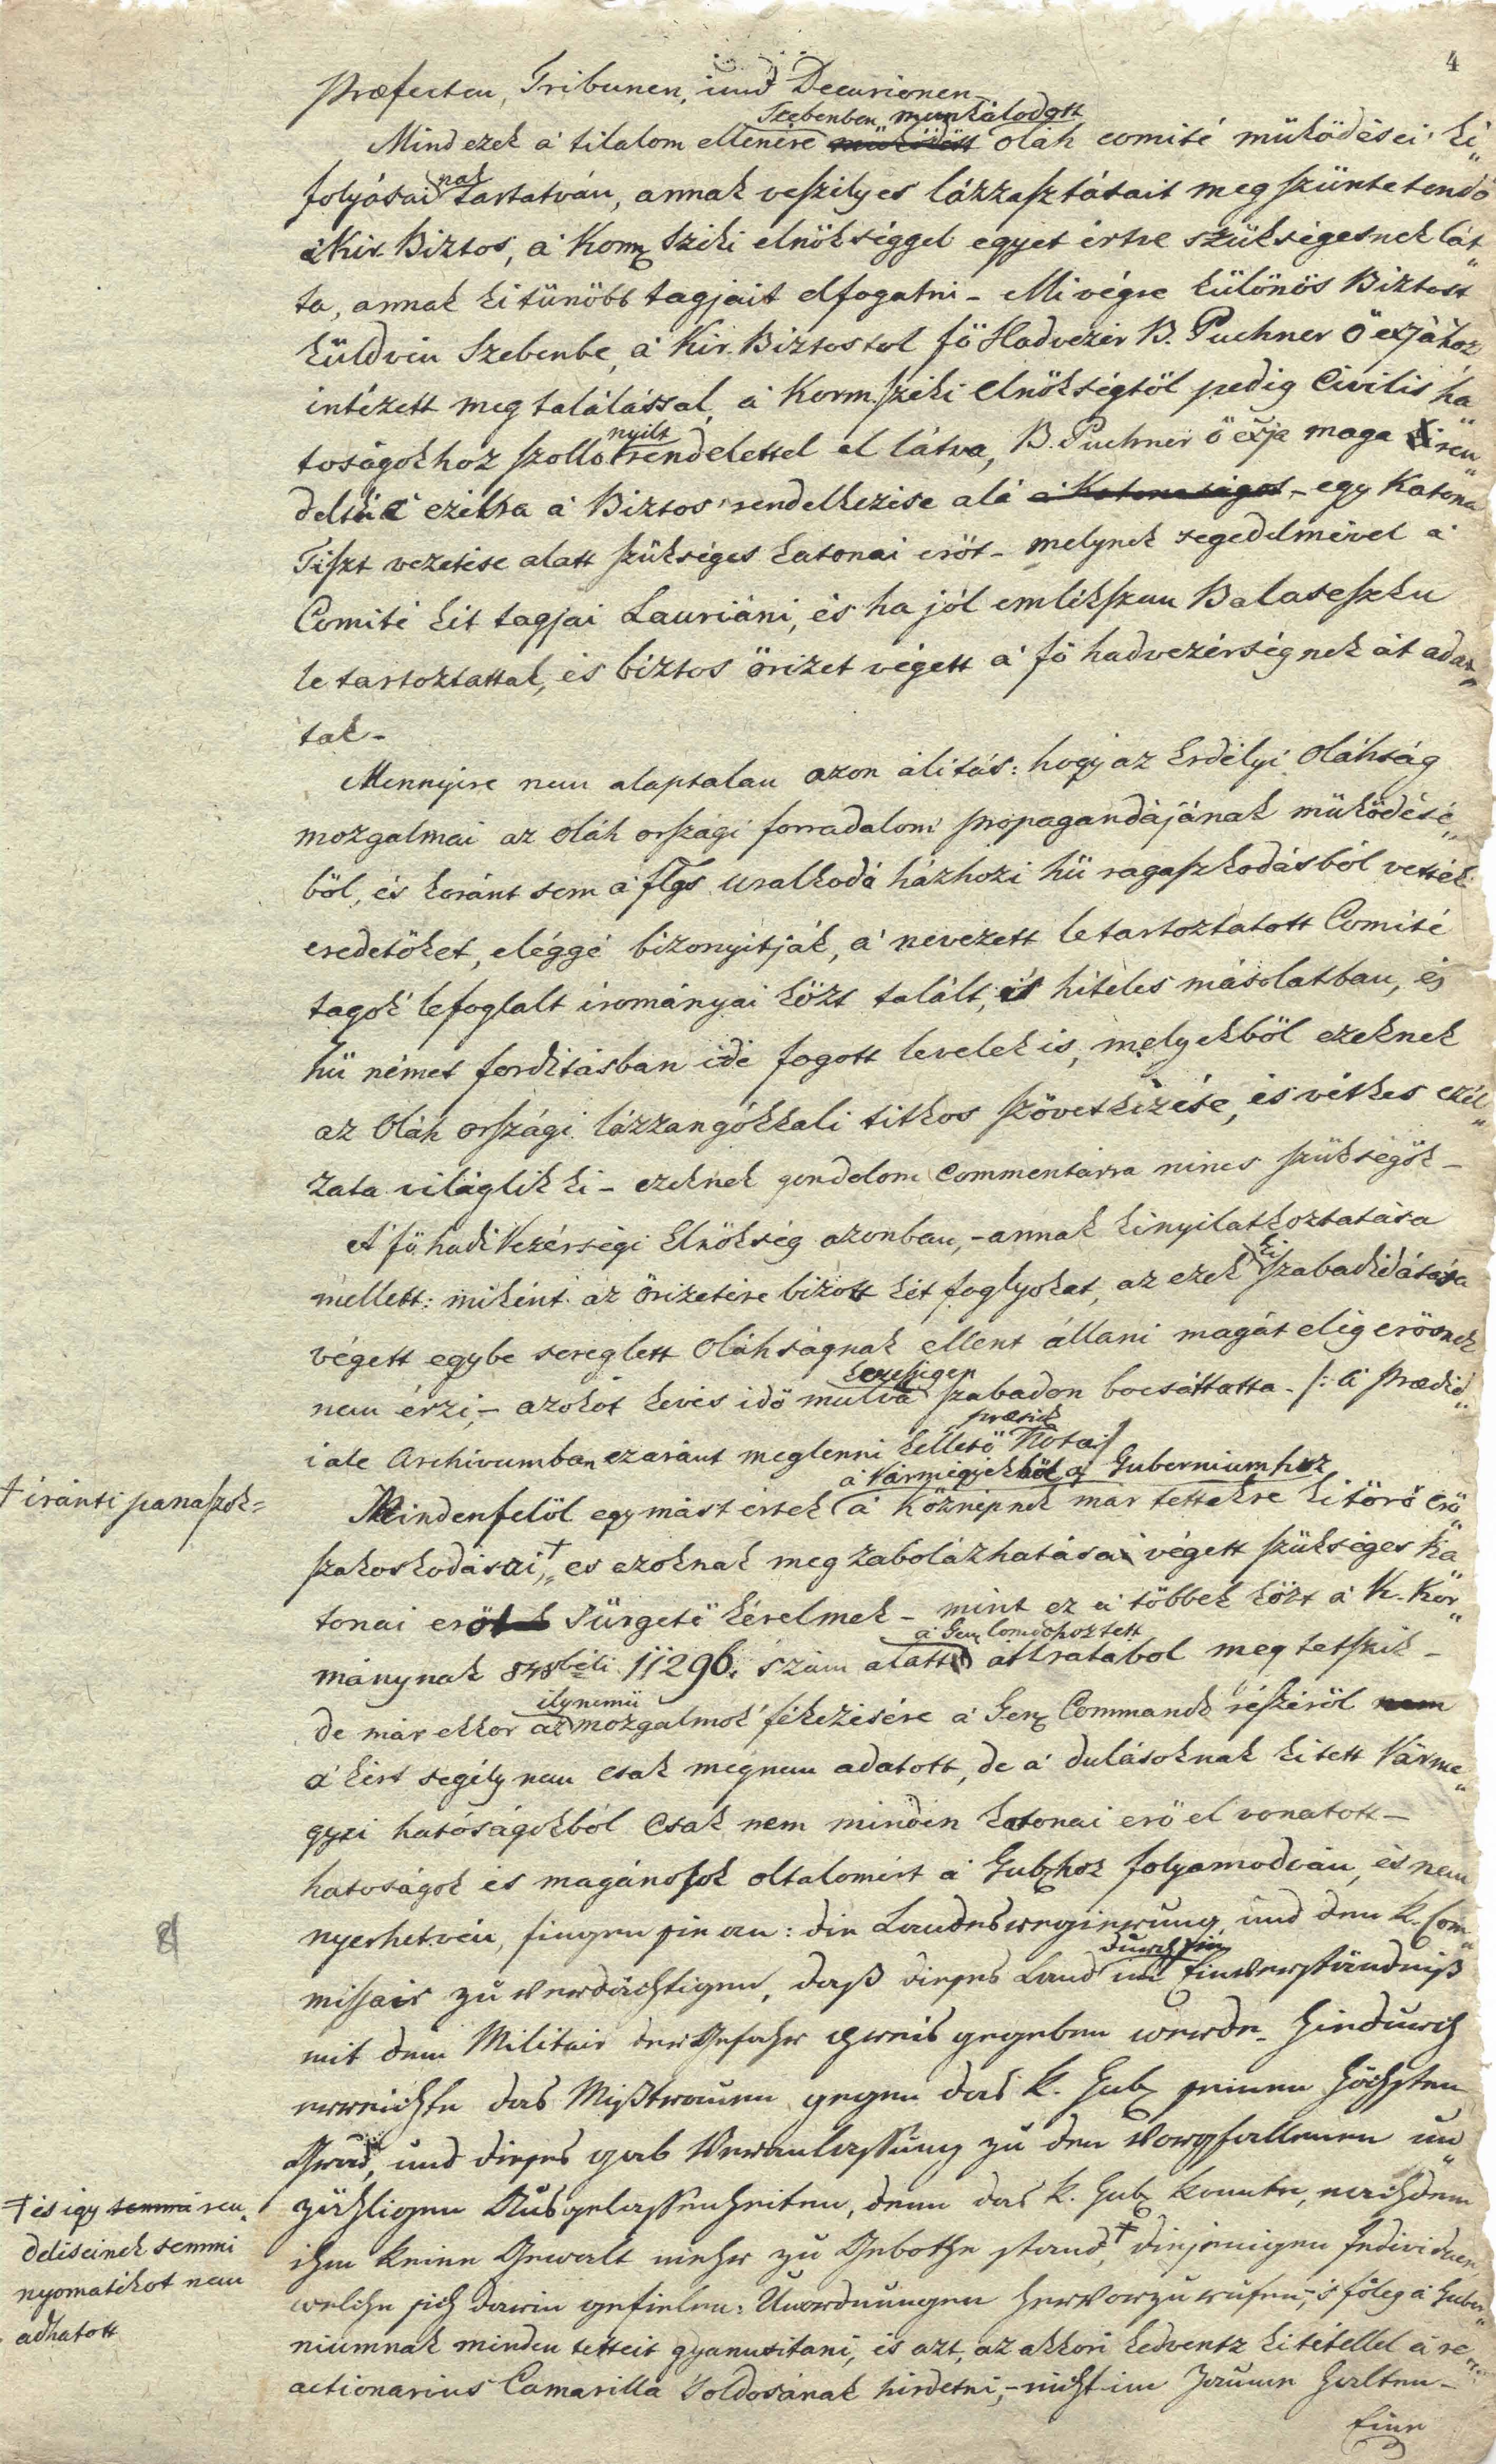 4
Præfecten, Tribunen, und Decurionen_
Szebenben munkálodott
Mind ezek a' tilalom ellenére működött oláh comité müködései' ki„
folyásainak tartatván, annak veszilyes lázzasztásait meg szüntetendő
a' Kir. Biztos, a' Korm Széki elnökséggel egyet értve szükségesnek lát„
ta, annak kitünöbb tagjait elfogatni – Mi végre különös Biztost
küldvén Szebenbe, a' Kir. Biztostol fö Hadvezér B. Puchner ő exjához
intézett meg találással, a' Korm. széki elnökségtöl pedig Civilis ha„
toságokhoz szolló nyilt rendelettel el látva, B. Puchner ő exja maga ren„
delt ezekbe a' Biztos' rendelkezése alá a' Katonaságot – egy Katona
Tiszt vezetése alatt szükséges katonai eröt – melynek segedelmével a'
Comité két tagjai Lauriáni, és ha jól emlékszem Balaseszku
le tartoztattak, és biztos őrizet végett a' fő hadvezérségnek át adat„
tak –
Mennyire nem alaptalan azon álitás: hogy az Erdélyi Oláhság
mozgalmai az oláh országi forradalom propagandájának müködésé„
böl, és koránt sem a' flgs uralkodó házhozi hü ragaszkodásból vették
eredetöket, eléggé bizonyitják, a' nevezett letartoztatott Comité
tagok' lefoglalt irományai közt talált, és hiteles másolatban, és
hü német forditásban ide fogott levelek is, melyekböl ezeknek
az Oláh országi lázzangókkali titkos szövetkezése, és vétkes czél„
zata világlik ki – ezeknek gondolom commentárra nincs szükségök –
A' fő hadi Vezérségi Elnökség azonban, – annak kinyilatkoztatása
mellett: miként az örizetére bizott két foglyokat, az ezek ki szabadidatása
végett egybe sereglett Oláhságnak ellent állani magát elég erösnek
nem érzi, – azokat kevés idö mulva kezességen szabadon bocsáttatta – /: A' Præsid„
iale Archivumban ezaránt meglenni kelletö præsid Nota :/
Mindenfelöl egymást érték a' Vármegyékböl a' Guberniumhoz a' köznépnek már tettekre kitörő erö„
szakoskodásai,† es ezoknak meg zabolázhatása végett szükséges Ka„
† iránti panaszok =
tonai eröt Sürgetö kérelmek – mint ez a' többek közt a' K. Kor„
mánynak 848béli 11296. szám alatt a' Gen comdohoz tett átiratábol meg tetszik –
de már ekkor az ilynemü mozgalmok' fékezésére a' Gen Commando részéröl nem
a' kért segély nem csak megnem adatott, de a' dulásoknak kitett Várme„
gyei hatóságokból csak nem minden katonai erö el vonatott –
hatoságok és magánosok oltalomért a' Gubhoz folyamodván, és nem
nyerhetvén, fingen sie an: die Landesregierung und den K. Com„
missair zu verdächtigen, daß dieses Land durch sie im Einverständniß
mit dem Militair der Gefahr Preis gegeben werde. Hiedurch
erreichte das Mißtrauen gegen das k. Gub seinen höchsten
Grad, und dieses gab Veranlassung zu den vorgefallenen un„
zähligen Ausgelassenheiten, denn das k. Gub konnte, nachdem
ihm keine Gewalt mehr zu Gebothe stand,† diejenigen Individuen,
† és igy semmi ren„
deléseinek semmi
nyomatékot nem
adhatott
welche sich darin gefielen: Unordnungen hervorzurufen, 's föleg a' Guber„
niumnak minden tetteit gyanusitani, és azt, az akkori kedventz kitétellel a' re„
actionarius Camarilla zoldosának hirdetni, – nicht im Zaume halten –
Eine